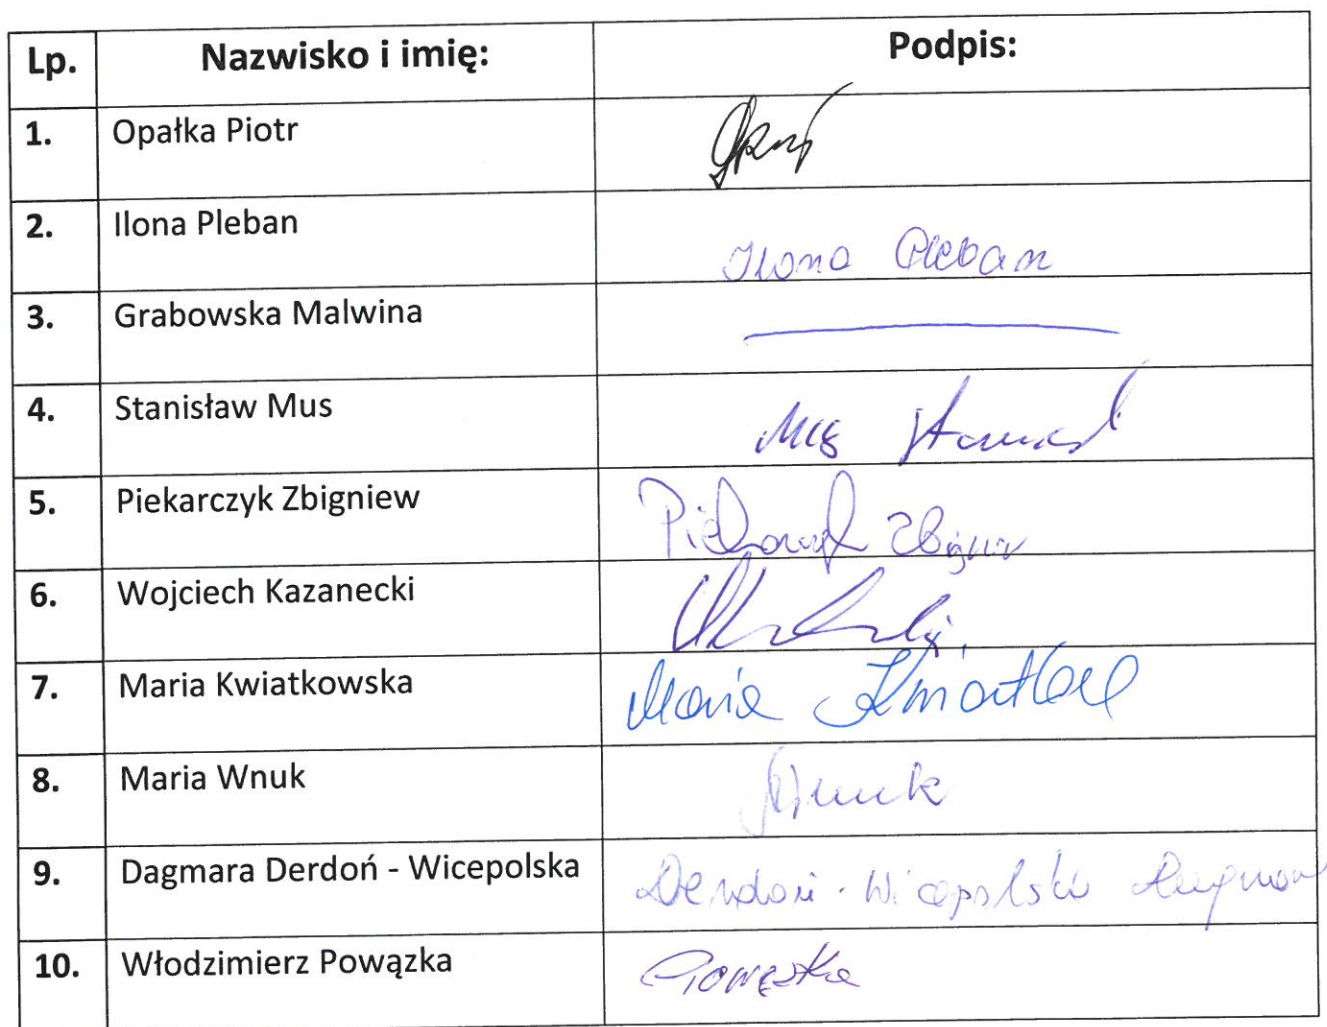 Lp. Nazwisko i imię: Podpis:
1. Opałka Piotr
2. Ilona Pleban Ilona Pleban
3. Grabowska Malwina
4. Stanisław Mus Mus
5. Piekarczyk Zbigniew
6. Wojciech Kazanecki
7. Maria Kwiatkowska Maria
8. Maria Wnuk Wnuk
9. Dagmara Derdoń - Wicepolska Derdoń-Wicepolska
10. Włodzimierz Powązka Powązka